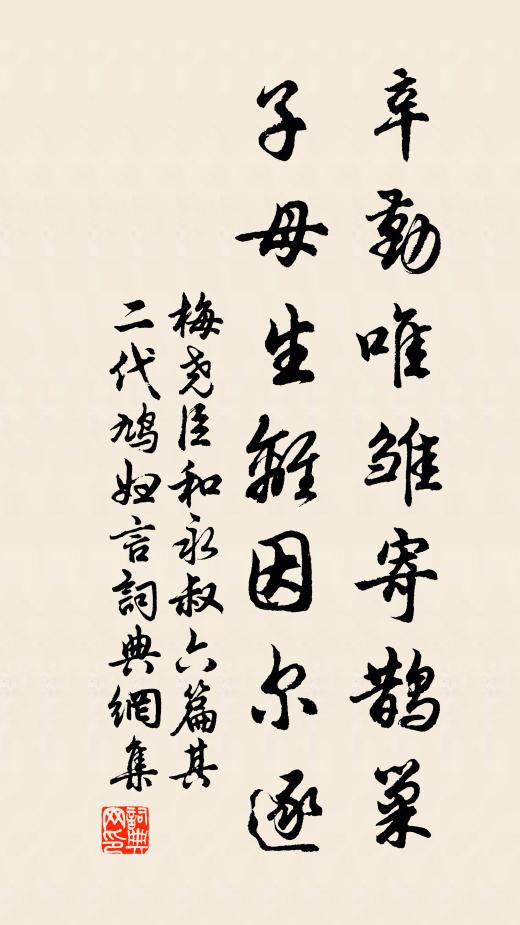 辛勤唯雏寄鹊巢
子母生離因尔逐
梅尧臣和永叔六篇其
二代鸠妇言詞典網集
詞典
网印